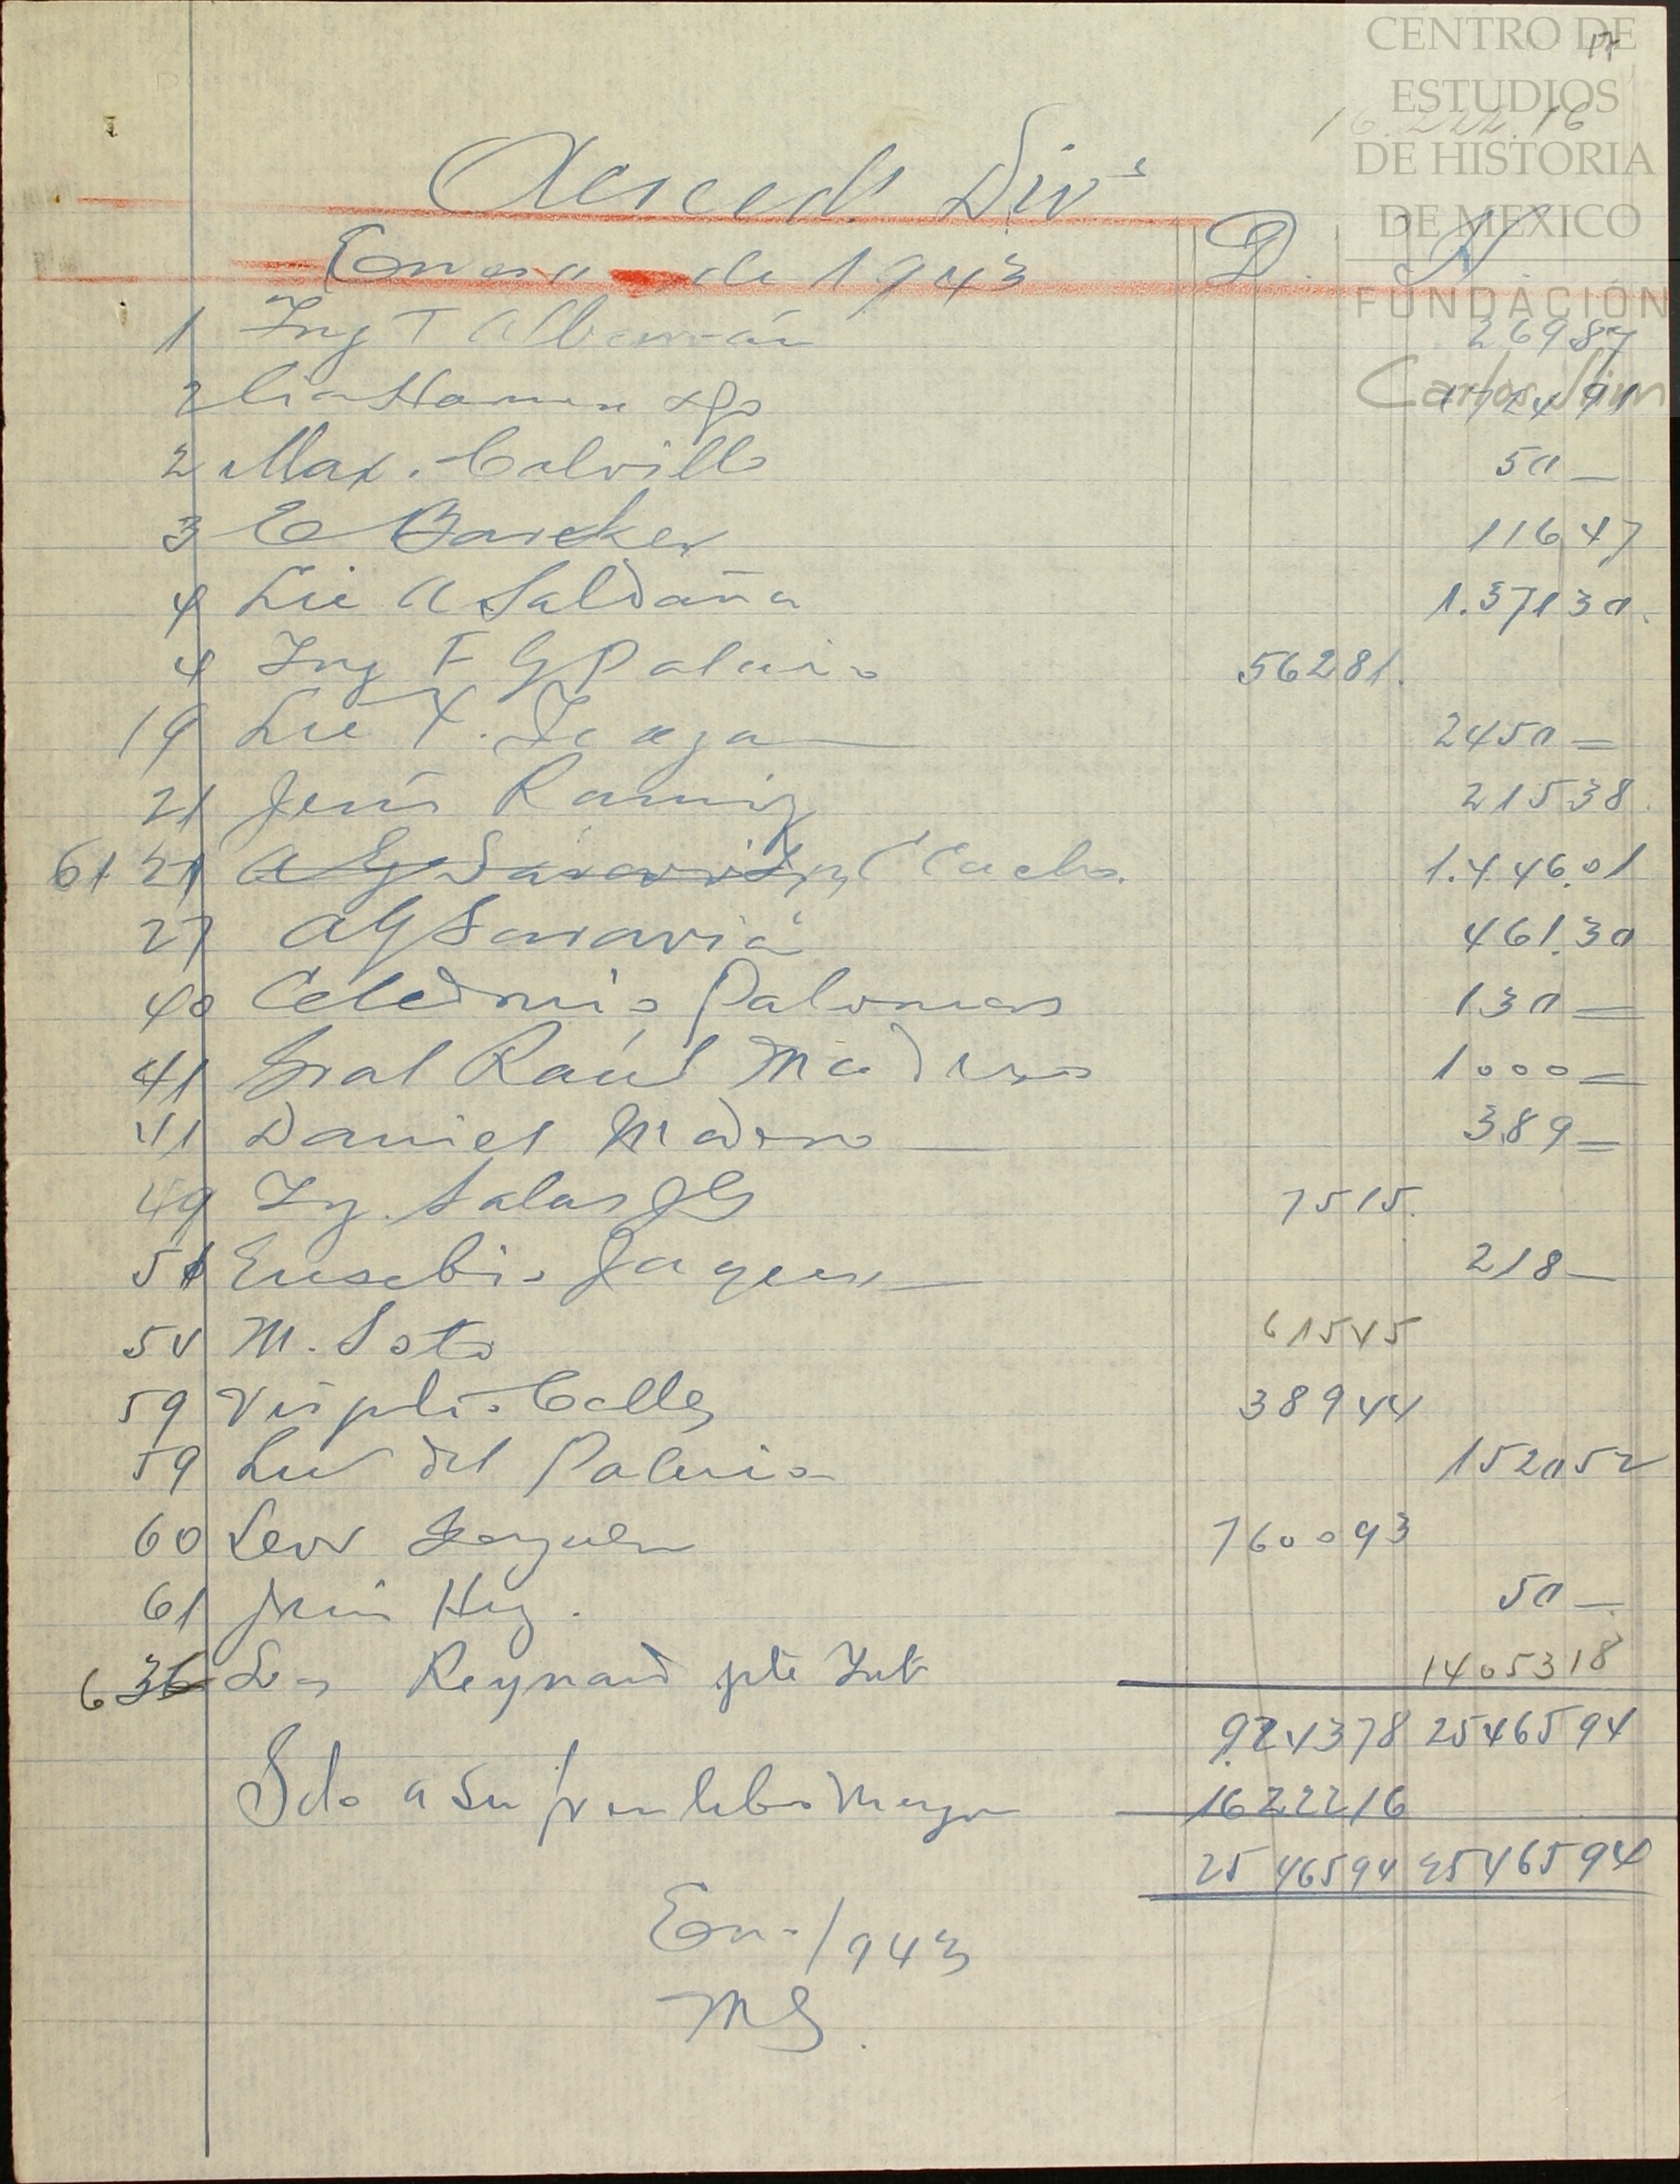 CENTRO DE
ESTUDIOS
DE HISTORIA
DE MEXICO
FUNDACIÓN
Carlos Slim
17
16.222.16
Acreed. Divs
Enero de 1943 D. H
1 Ing T 26987
2 172491
2 Max. Calvillo 50 —
3 E Barcker 11647
4 Lic A Saldaña 1.37130.
4 Ing F G Palacio 56281.
19 Lic 2450 =
21 Jesús Ramirz 21538.
61 21 AG Saravia 1.446.01
27 AG Saravia 461.30
40 Celedonio Palomares 130 =
41 Gral Raúl Madero 1000 =
41 Daniel Madero — 389 =
49 Ig. Salas 7515.
51 Eusebio — 218 —
54 M. Soto 61545
59 Calles 38944
59 Luz del Palacio 152052
60 760093
61 Jesús Hrz. 50 —
6 36 Reynaud pte 1405318
924378 2546594
Sdo a Su fvor en libro Mayor 1622216
2546594 2546594
En-/943
MS.